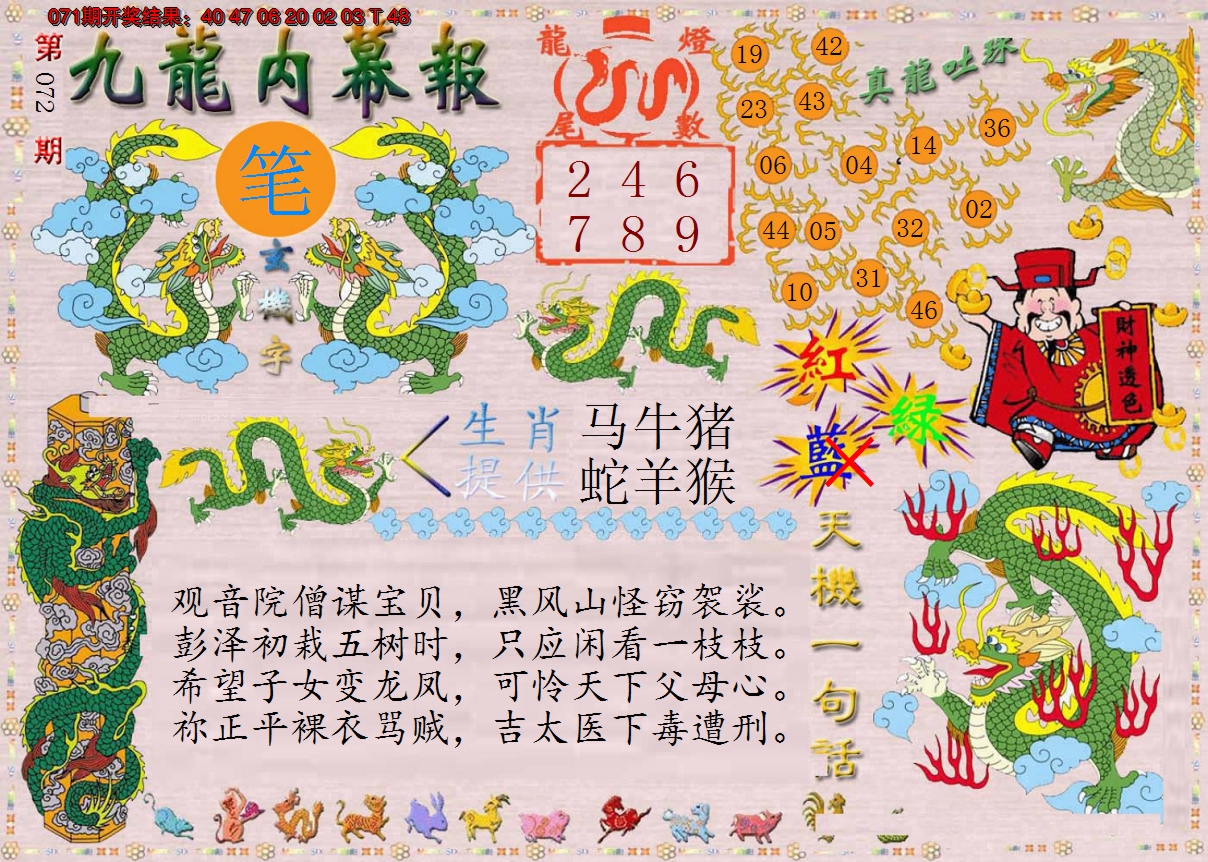 071期开奖结果：40 47 06 20 02 03 T 48
第072期
九龍内幕報
笔
玄機字
龍燈
尾數
2 4 6
7 8 9
真龍吐珠
19
42
23
43
36
14
06
04
02
44
05
32
31
10
46
財神透色
紅
綠
藍
生肖 马牛猪
提供 蛇羊猴
天機一句话
观音院僧谋宝贝，黑风山怪窃袈裟。
彭泽初栽五树时，只应闲看一枝枝。
希望子女变龙凤，可怜天下父母心。
祢正平裸衣骂贼，吉太医下毒遭刑。